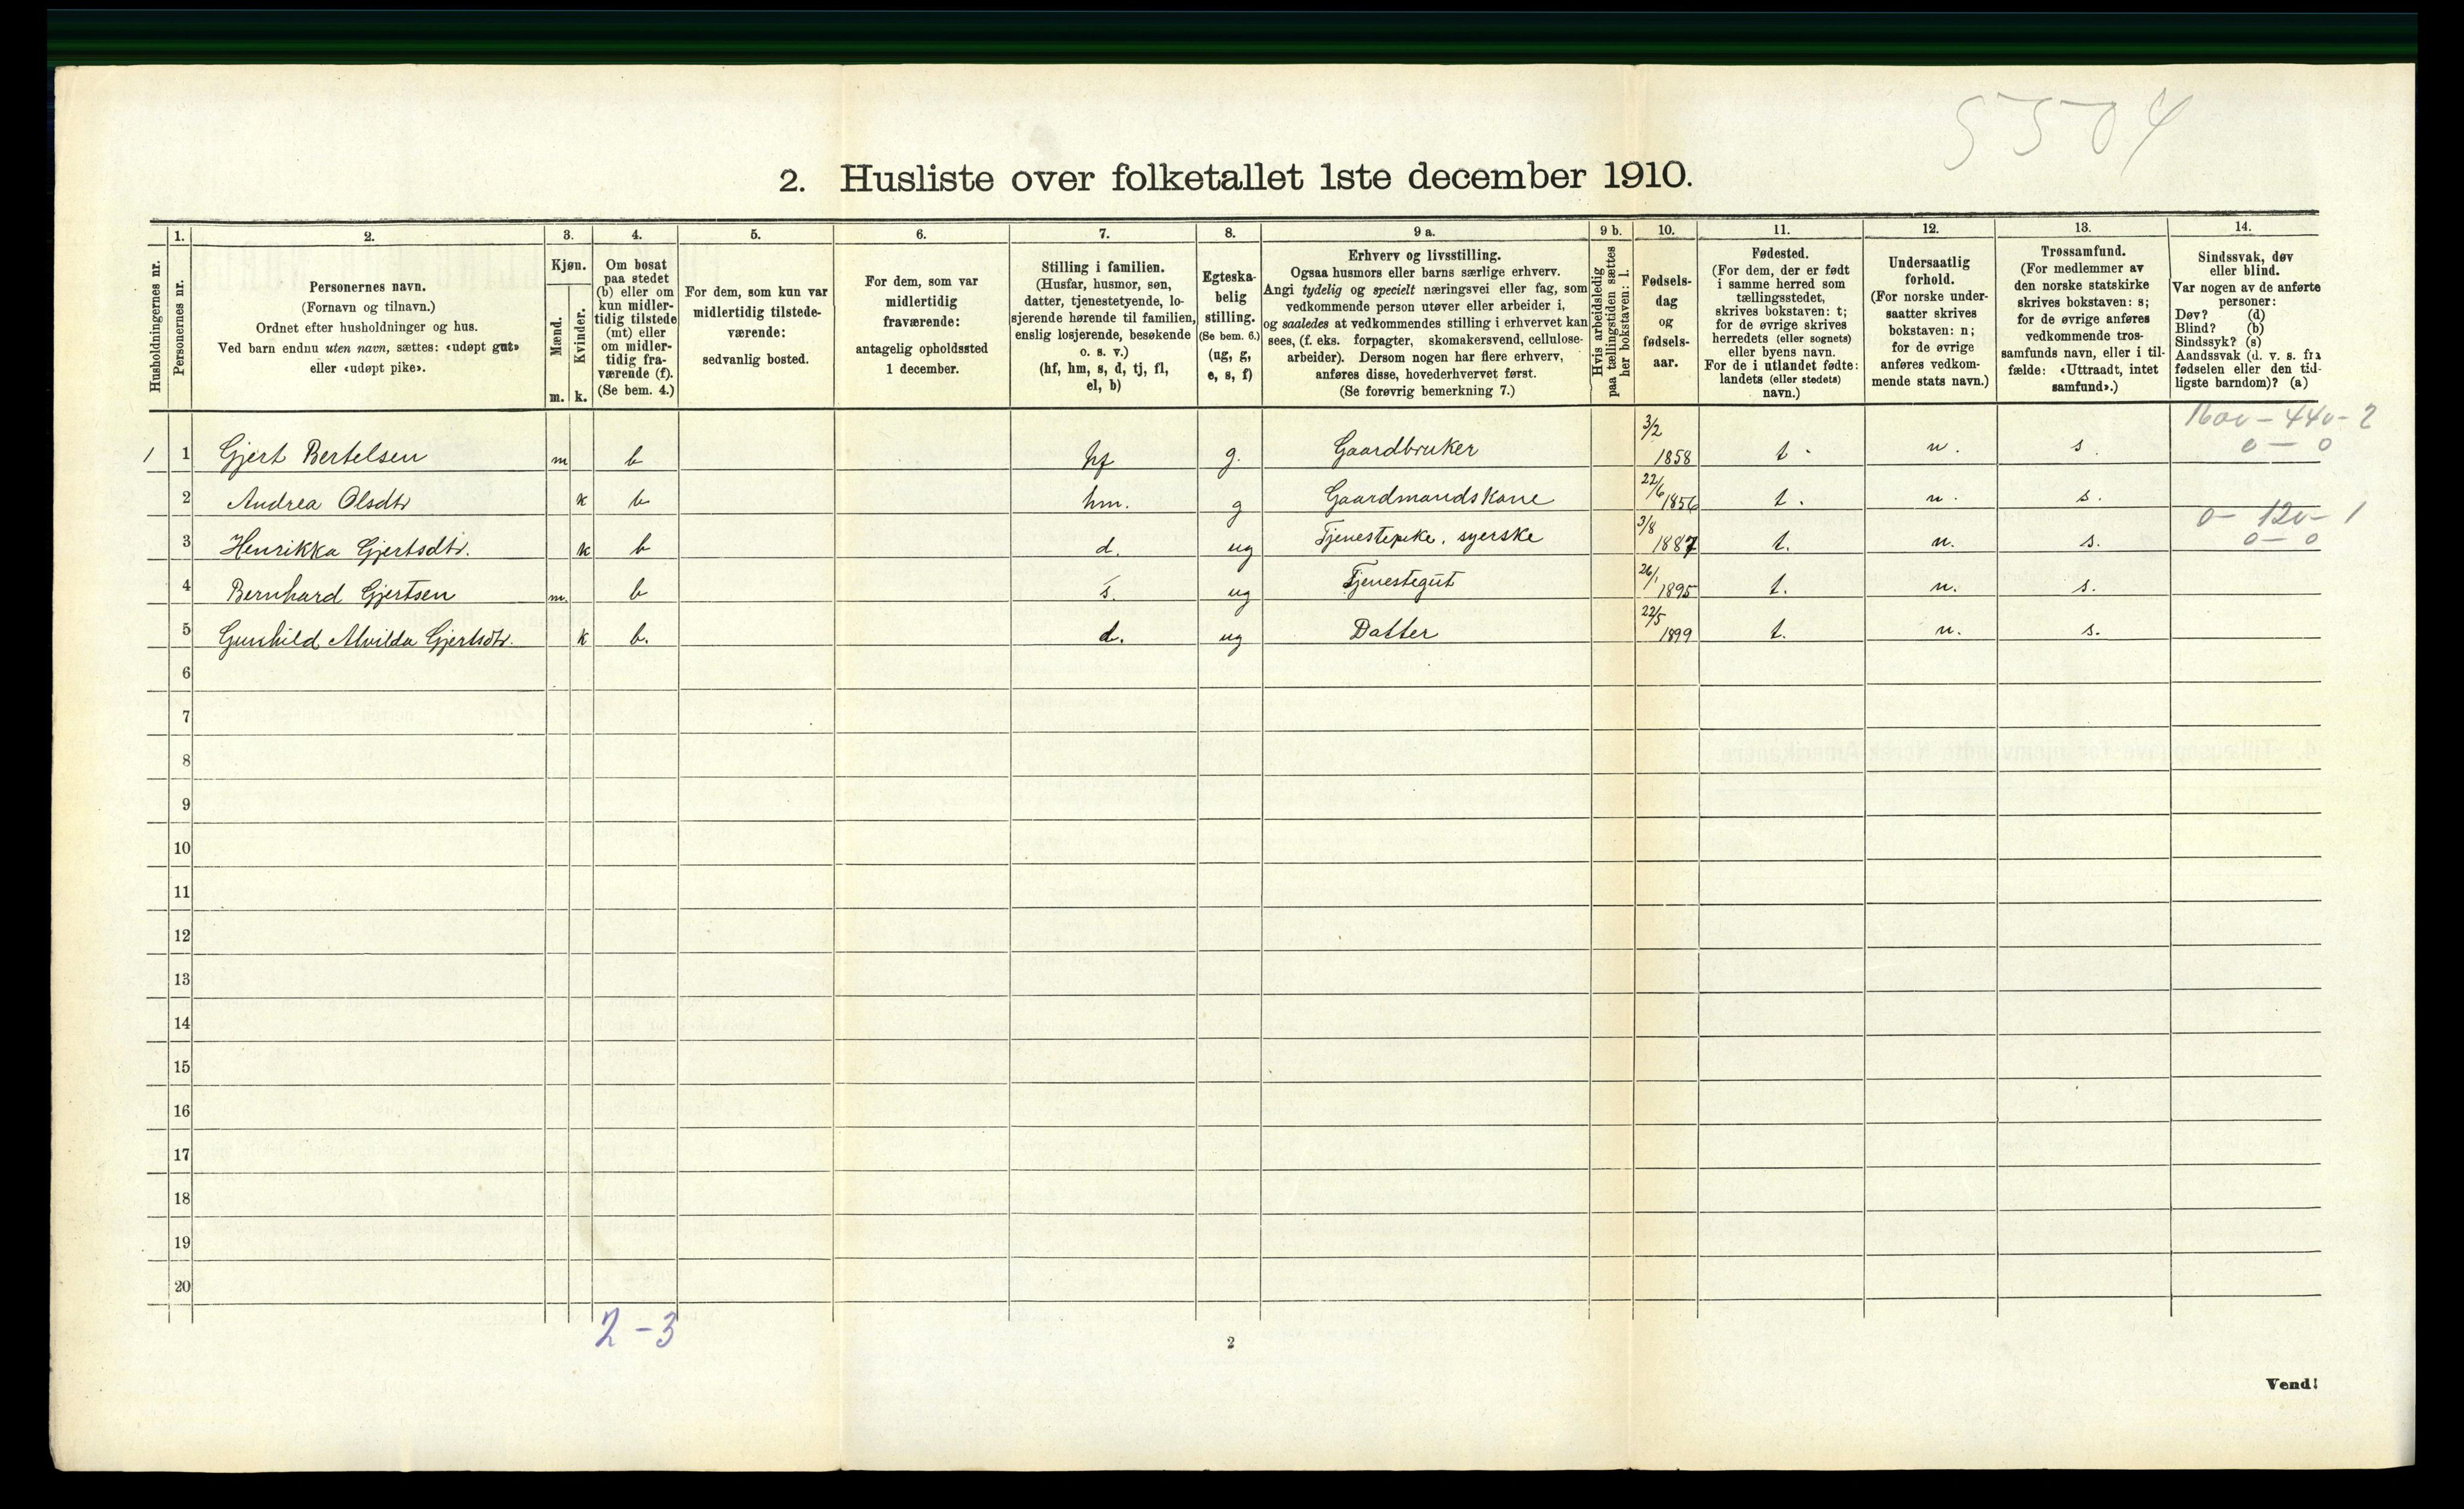 5504
2. Husliste over folketallet 1ste december 1910.
Husholdningernes nr.
1.
Personernes nr.
2.
Personernes navn.
(Fornavn og tilnavn.)
Ordnet efter husholdninger og hus.
Ved barn endnu uten navn, sættes: «udøpt gut»
eller «udøpt pike».
3.
Kjøn.
Mænd.
Kvinder.
m.
k.
4.
Om bosat
paa stedet
(b) eller om
kun midler-
tidig tilstede
(mt) eller
om midler-
tidig fra-
værende (f).
(Se bem. 4.)
5.
For dem, som kun var
midlertidig tilstede-
værende:
sedvanlig bosted.
6.
For dem, som var
midlertidig
fraværende:
antagelig opholdssted
1 december.
7.
Stilling i familien.
(Husfar, husmor, søn,
datter, tjenestetyende, lo-
sjerende hørende til familien,
enslig losjerende, besøkende
o. s. v.)
(hf, hm, s, d, tj, fl,
el, b)
8.
Egteska-
belig
stilling.
(Se bem. 6.)
(ug, g,
e, s, f)
9 a.
Erhverv og livsstilling.
Ogsaa husmors eller barns særlige erhverv.
Angi tydelig og specielt næringsvei eller fag, som
vedkommende person utøver eller arbeider i,
og saaledes at vedkommendes stilling i erhvervet kan
sees, (f. eks. forpagter, skomakersvend, cellulose-
arbeider). Dersom nogen har flere erhverv,
anføres disse, hovederhvervet først.
(Se forøvrig bemerkning 7.)
9 b.
Hvis arbeidsledig
paa tællingstiden sættes
her bokstaven: l.
10.
Fødsels-
dag
og
fødsels-
aar.
11.
Fødested.
(For dem, der er født
i samme herred som
tællingsstedet,
skrives bokstaven: t;
for de øvrige skrives
herredets (eller sognets)
eller byens navn.
For de i utlandet fødte:
landets (eller stedets)
navn.)
12.
Undersaatlig
forhold.
(For norske under-
saatter skrives
bokstaven: n;
for de øvrige
anføres vedkom-
mende stats navn.)
13.
Trossamfund.
(For medlemmer av
den norske statskirke
skrives bokstaven: s;
for de øvrige anføres
vedkommende tros-
samfunds navn, eller i til-
fælde: «Uttraadt, intet
samfund».)
14.
Sindssvak, døv
eller blind.
Var nogen av de anførte
personer:
Døv? (d)
Blind? (b)
Sindssyk? (s)
Aandssvak (d. v. s. fra
fødselen eller den tid-
ligste barndom)? (a)
1 1 Gjert Bertelsen m b hf g. Gaardbruker 3/2 1858 t. n. s. 1600 - 440 - 2
0 - 0
2 Andrea Olsdtr k b hm. g Gaardmandskone 22/6 1856 t. n. s.
3 Henrikka Gjertsdtr. k b d. ug Tjenestepike, syerske 3/8 1887 t. n. s. 0 - 120 - 1
0 - 0
4 Bernhard Gjertsen m. b s. ug Tjenestegut 26/1 1895 t. n. s.
5 Gunhild Alvilda Gjertsdtr. k b. d. ug Datter 22/5 1899 t. n. s.
6
7
8
9
10
11
12
13
14
15
16
17
18
19
20
2-3
2
Vend!